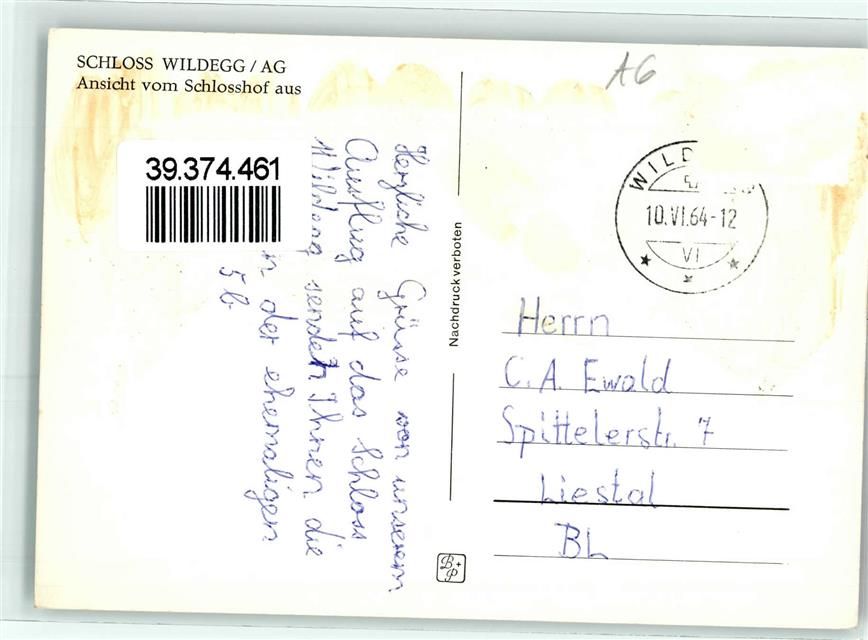 SCHLOSS WILDEGG / AG
Ansicht vom Schlosshof aus
39.374.461
Herzliche Grüsse von unserem
Ausflug auf das Schloss
Wildegg senden Ihnen die
der ehemaligen
5b
Nachdruck verboten
B+P
A6
WILD
10.VI.64-12
VI
Herrn
C. A. Ewald
Spittelerstr. 7
Liestal
BL